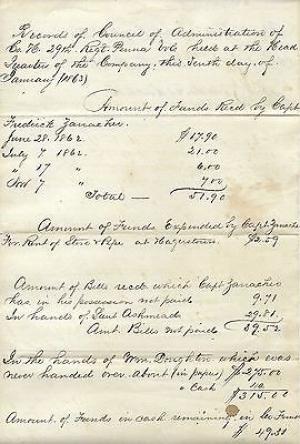 Records of Council of Administration of
Co. H. 29th Regt. Penna Vols held at the Head
Quarters of the Company, this Tenth day of
January (1863)
Amount of Funds Recd by Capt
Fredrick Zarracher.
June 28. 1862. $17.90
July 7 1862. 21.00
" 17 " 6.00
Nov 7 " 7.00
Total — 51.90
Amount of Funds Expended by Capt Zarracher
For Rent of Store & Pipe at Hagerstown. $2.59
Amount of Bills recd which Capt Zarracher
has in his possession not paid 9.71
In hands of Lieut Ashmead 29.81
Amt. Bills not paid 39.52
In the hands of Wm. Doughton which was
never handed over. About (in paper) $275.00
" Cash 40
$315.00
Amount of Funds in cash remaining in Co Fund
$ 49.31